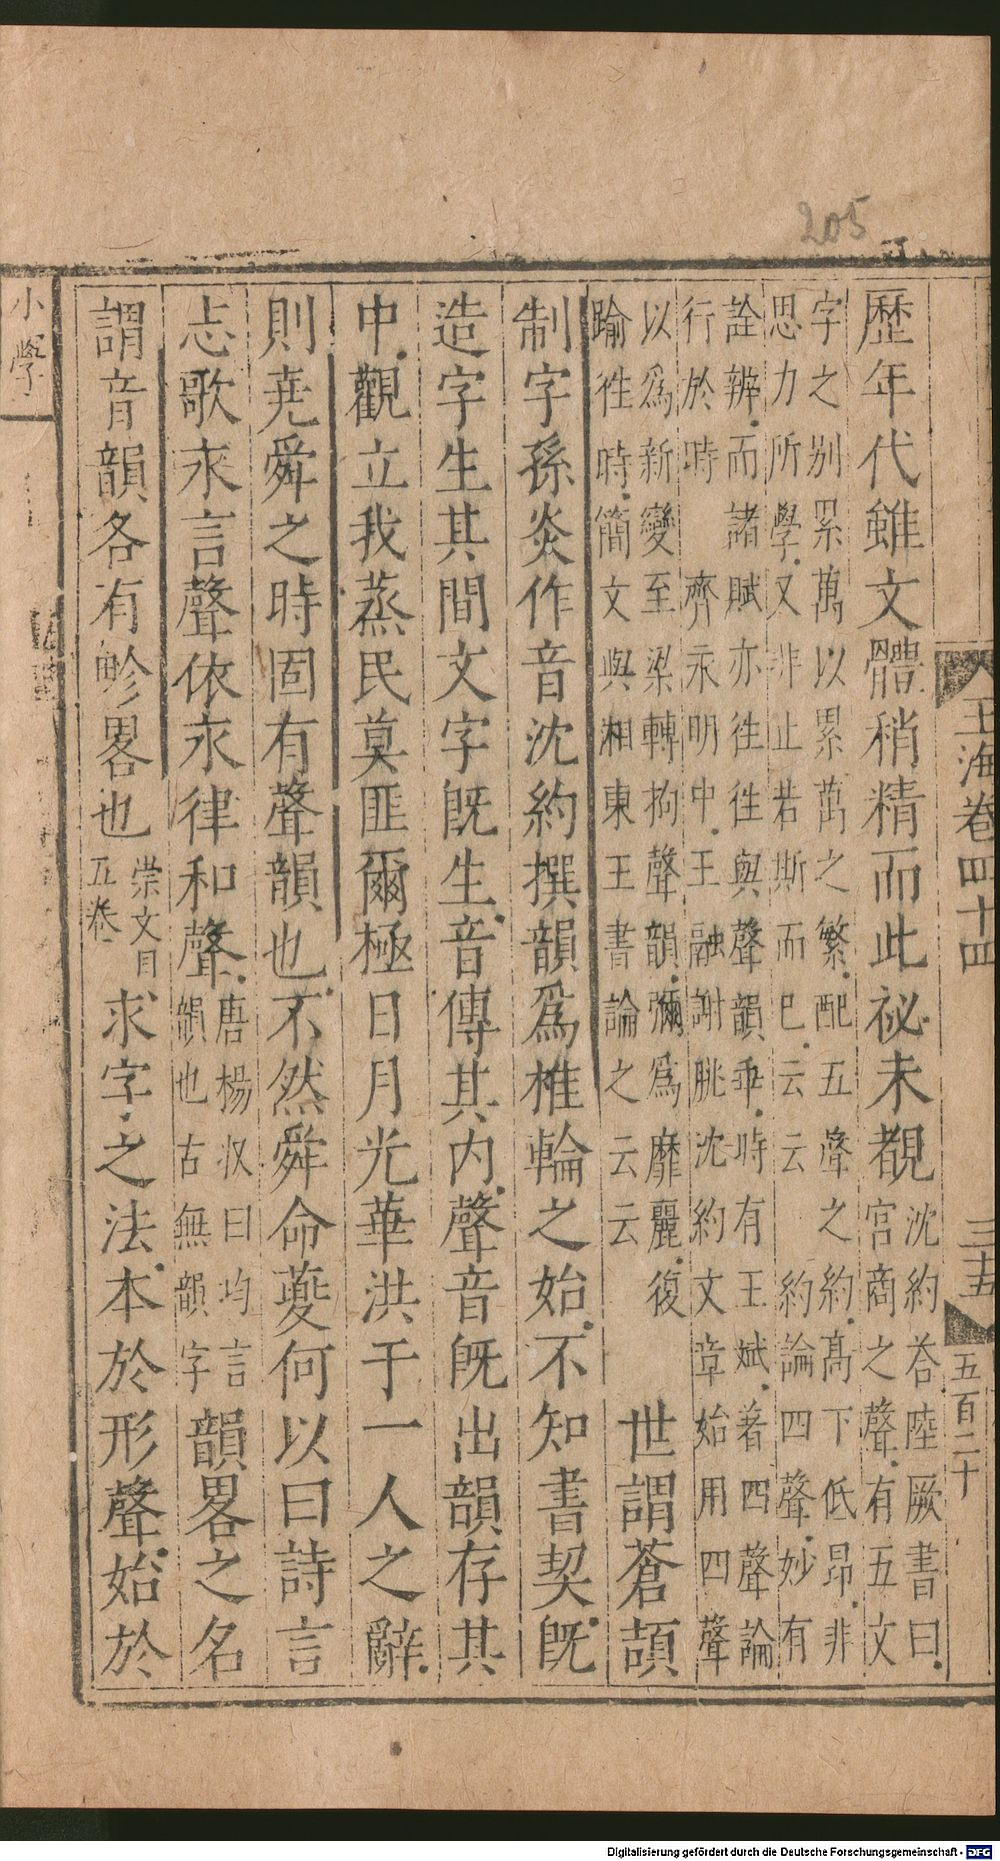 205
玉海卷四十四
三十五
五百二十
歷年代雖文體稍精而此祕未覩沈約荅陸厥書曰宮商之聲有五文
字之別累萬以累萬之繁配五聲之約高下低昂非
思力所學又非止若斯而巳云云 約論四聲妙有
詮辨而諸賦亦徃徃與聲韻乖時有王斌著四聲論
行於時 齊永明中王融謝朓沈約文章始用四聲
以為新變至梁轉拘聲韻彌為靡麗復
踰徃時簡文與湘東王書論之云云
世謂蒼頡
制字孫炎作音沈約撰韻爲椎輪之始不知書契旣
造字生其間文字旣生音傳其内聲音旣出韻存其
中觀立我蒸民莫匪爾極日月光華洪于一人之辭
則堯舜之時固有聲韻也不然舜命夔何以曰詩言
志歌永言聲依永律和聲唐楊収曰均言韻也古無韻字韻畧之名
謂音韻各有畛畧也崇文目五卷求字之法本於形聲始於
小學
Digitalisierung gefördert durch die Deutsche Forschungsgemeinschaft - DFG